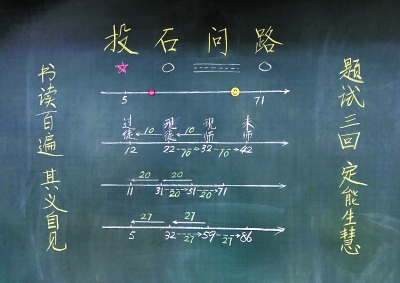 投石问路
书读百遍 其义自见
题试三回 定能生慧
5 71
过徒 现徒 现师 未师
10 10
12 22 32 42
10 10 10
20 20
11 31 51 71
20 20
27 27
5 32 59 86
27 27